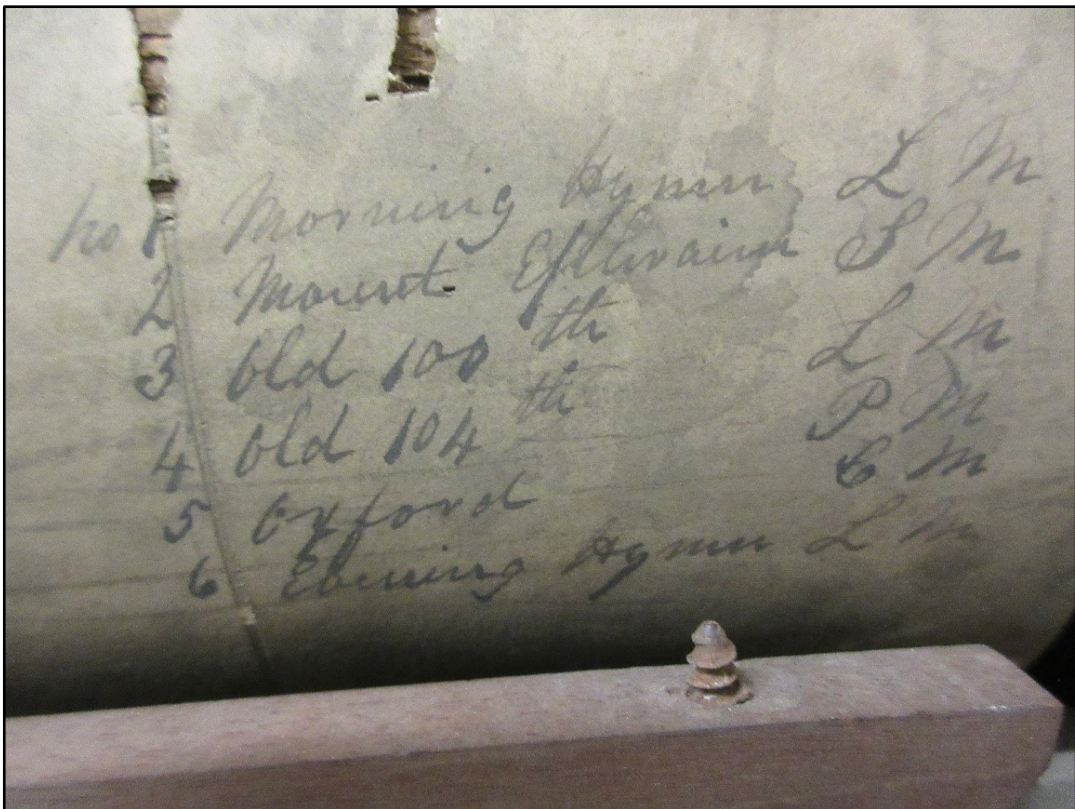 No 1 Morning Hymn L M
2 Mount Ephraim S M
3 Old 100 th L M
4 Old 104 th P M
5 Oxford C M
6 Evening Hymn L M